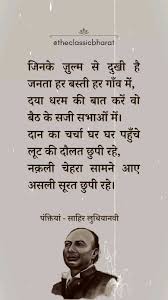 @theclassicbharat
जिनके ज़ुल्म से दुखी है
जनता हर बस्ती हर गाँव में,
दया धरम की बात करें वो
बैठ के सजी सभाओं में।
दान का चर्चा घर घर पहुँचे
लूट की दौलत छुपी रहे,
नक़ली चेहरा सामने आए
असली सूरत छुपी रहे।
पंक्तियां - साहिर लुधियानवी